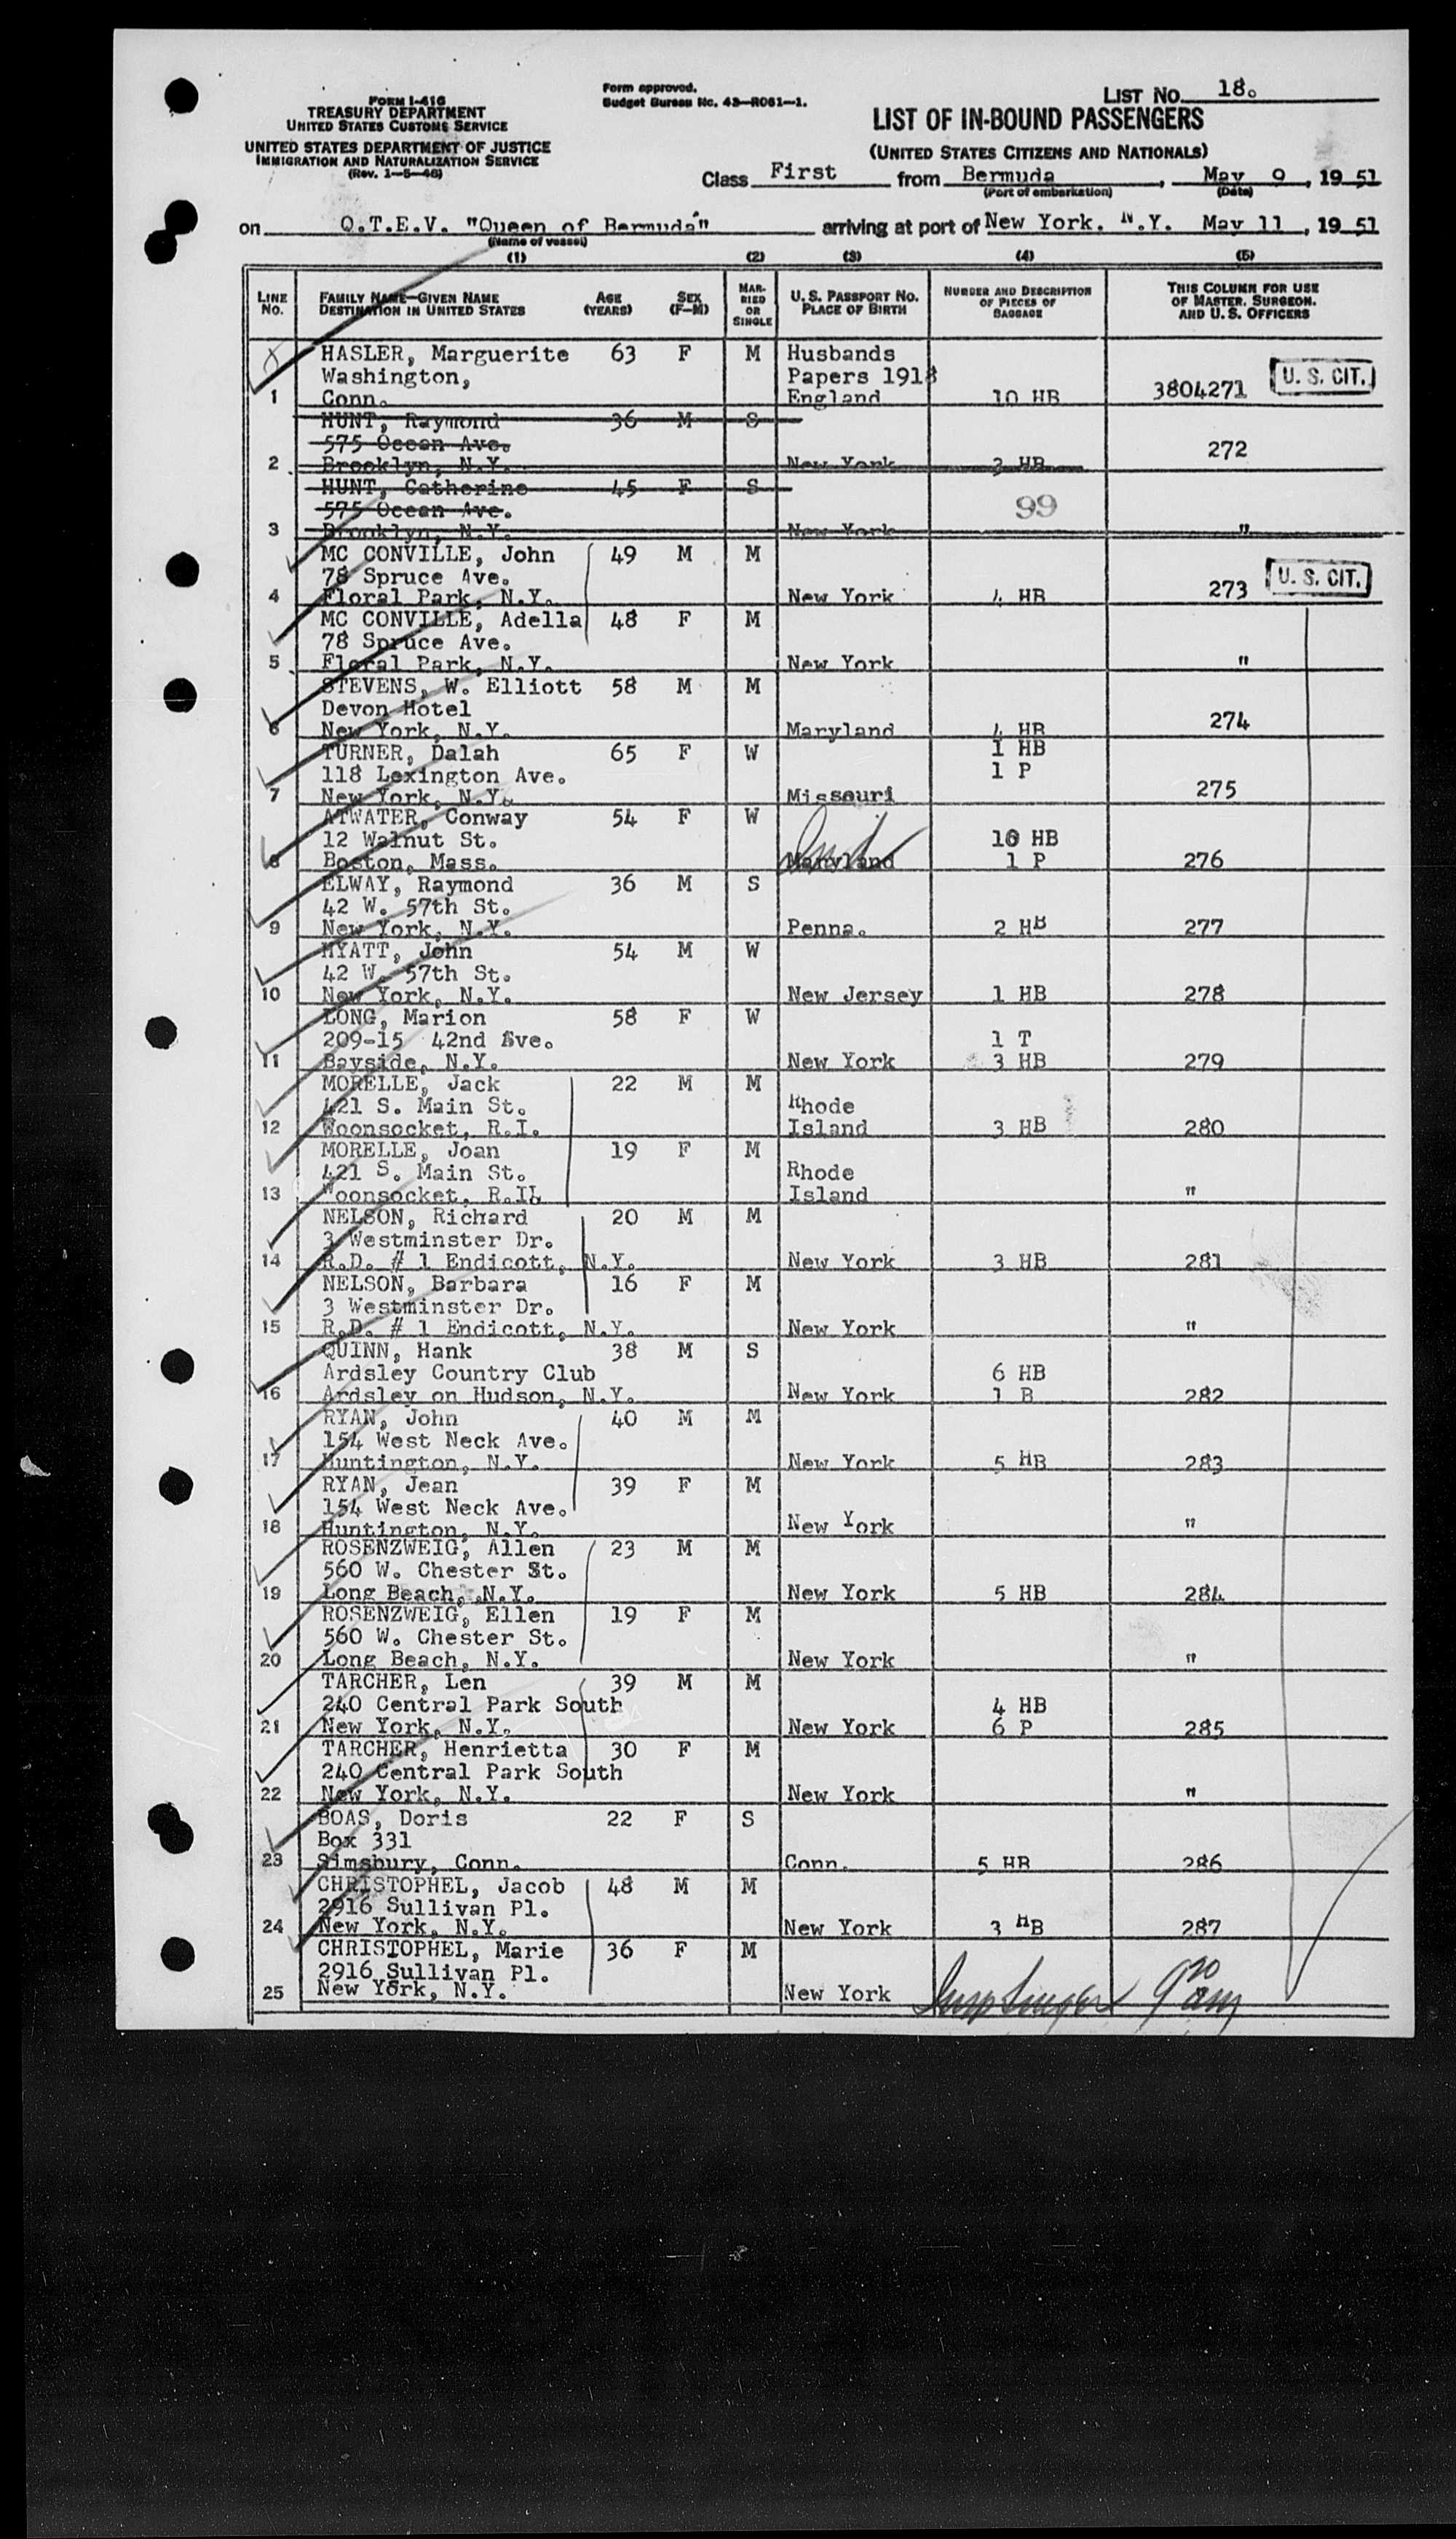 FORM I-416
TREASURY DEPARTMENT
UNITED STATES CUSTOMS SERVICE
UNITED STATES DEPARTMENT OF JUSTICE
IMMIGRATION AND NATURALIZATION SERVICE
(Rev. 1-5-46)
Form approved.
Budget Bureau No. 43-R061-1.
LIST NO. 18.
LIST OF IN-BOUND PASSENGERS
(UNITED STATES CITIZENS AND NATIONALS)
Class First from Bermuda, May 9, 1951
(Port of embarkation) (Date)
on Q.T.E.V. "Queen of Bermuda" arriving at port of New York. N.Y. May 11, 1951
(Name of vessel)
(1) (2) (3) (4) (5)
LINE NO. FAMILY NAME—GIVEN NAME DESTINATION IN UNITED STATES AGE (YEARS) SEX (F-M) MARRIED OR SINGLE U. S. PASSPORT NO. PLACE OF BIRTH NUMBER AND DESCRIPTION OF PIECES OF BAGGAGE THIS COLUMN FOR USE OF MASTER, SURGEON, AND U. S. OFFICERS
HASLER, Marguerite 63 F M Husbands
Washington, Papers 1918 U. S. CIT.
1 Conn. England 10 HB 3804271
HUNT, Raymond 36 M S
575 Ocean Ave. 272
2 Brooklyn, N.Y. New York 3 HB
HUNT, Catherine 45 F S
575 Ocean Ave. 99
3 Brooklyn, N.Y. New York "
MC CONVILLE, John 49 M M
78 Spruce Ave. U. S. CIT.
4 Floral Park, N.Y. New York 4 HB 273
MC CONVILLE, Adella 48 F M
78 Spruce Ave.
5 Floral Park, N.Y. New York "
STEVENS, W. Elliott 58 M M
Devon Hotel 274
6 New York, N.Y. Maryland 4 HB
TURNER, Dalah 65 F W 1 HB
118 Lexington Ave. 1 P
7 New York, N.Y. Missouri 275
ATWATER, Conway 54 F W
12 Walnut St. 10 HB
8 Boston, Mass. Maryland 1 P 276
ELWAY, Raymond 36 M S
42 W. 57th St.
9 New York, N.Y. Penna. 2 HB 277
HYATT, John 54 M W
42 W. 57th St.
10 New York, N.Y. New Jersey 1 HB 278
LONG, Marion 58 F W
209-15 42nd Ave. 1 T
11 Bayside, N.Y. New York 3 HB 279
MORELLE, Jack 22 M M
421 S. Main St. Rhode
12 Woonsocket, R.I. Island 3 HB 280
MORELLE, Joan 19 F M
421 S. Main St. Rhode
13 Woonsocket. R.I. Island "
NELSON, Richard 20 M M
3 Westminster Dr.
14 R.D. # 1 Endicott, N.Y. New York 3 HB 281
NELSON, Barbara 16 F M
3 Westminster Dr.
15 R.D. # 1 Endicott, N.Y. New York "
QUINN, Hank 38 M S
Ardsley Country Club 6 HB
16 Ardsley on Hudson, N.Y. New York 1 B 282
RYAN, John 40 M M
154 West Neck Ave.
17 Huntington, N.Y. New York 5 HB 283
RYAN, Jean 39 F M
154 West Neck Ave.
18 Huntington, N.Y. New York "
ROSENZWEIG, Allen 23 M M
560 W. Chester St.
19 Long Beach, N.Y. New York 5 HB 284
ROSENZWEIG, Ellen 19 F M
560 W. Chester St.
20 Long Beach, N.Y. New York "
TARCHER, Len 39 M M
240 Central Park South 4 HB
21 New York, N.Y. New York 6 P 285
TARCHER, Henrietta 30 F M
240 Central Park South
22 New York, N.Y. New York "
BOAS, Doris 22 F S
Box 331
23 Simsbury, Conn. Conn. 5 HB 286
CHRISTOPHEL, Jacob 48 M M
2916 Sullivan Pl.
24 New York, N.Y. New York 3 HB 287
CHRISTOPHEL, Marie 36 F M
2916 Sullivan Pl.
25 New York, N.Y. New York 9 20 am